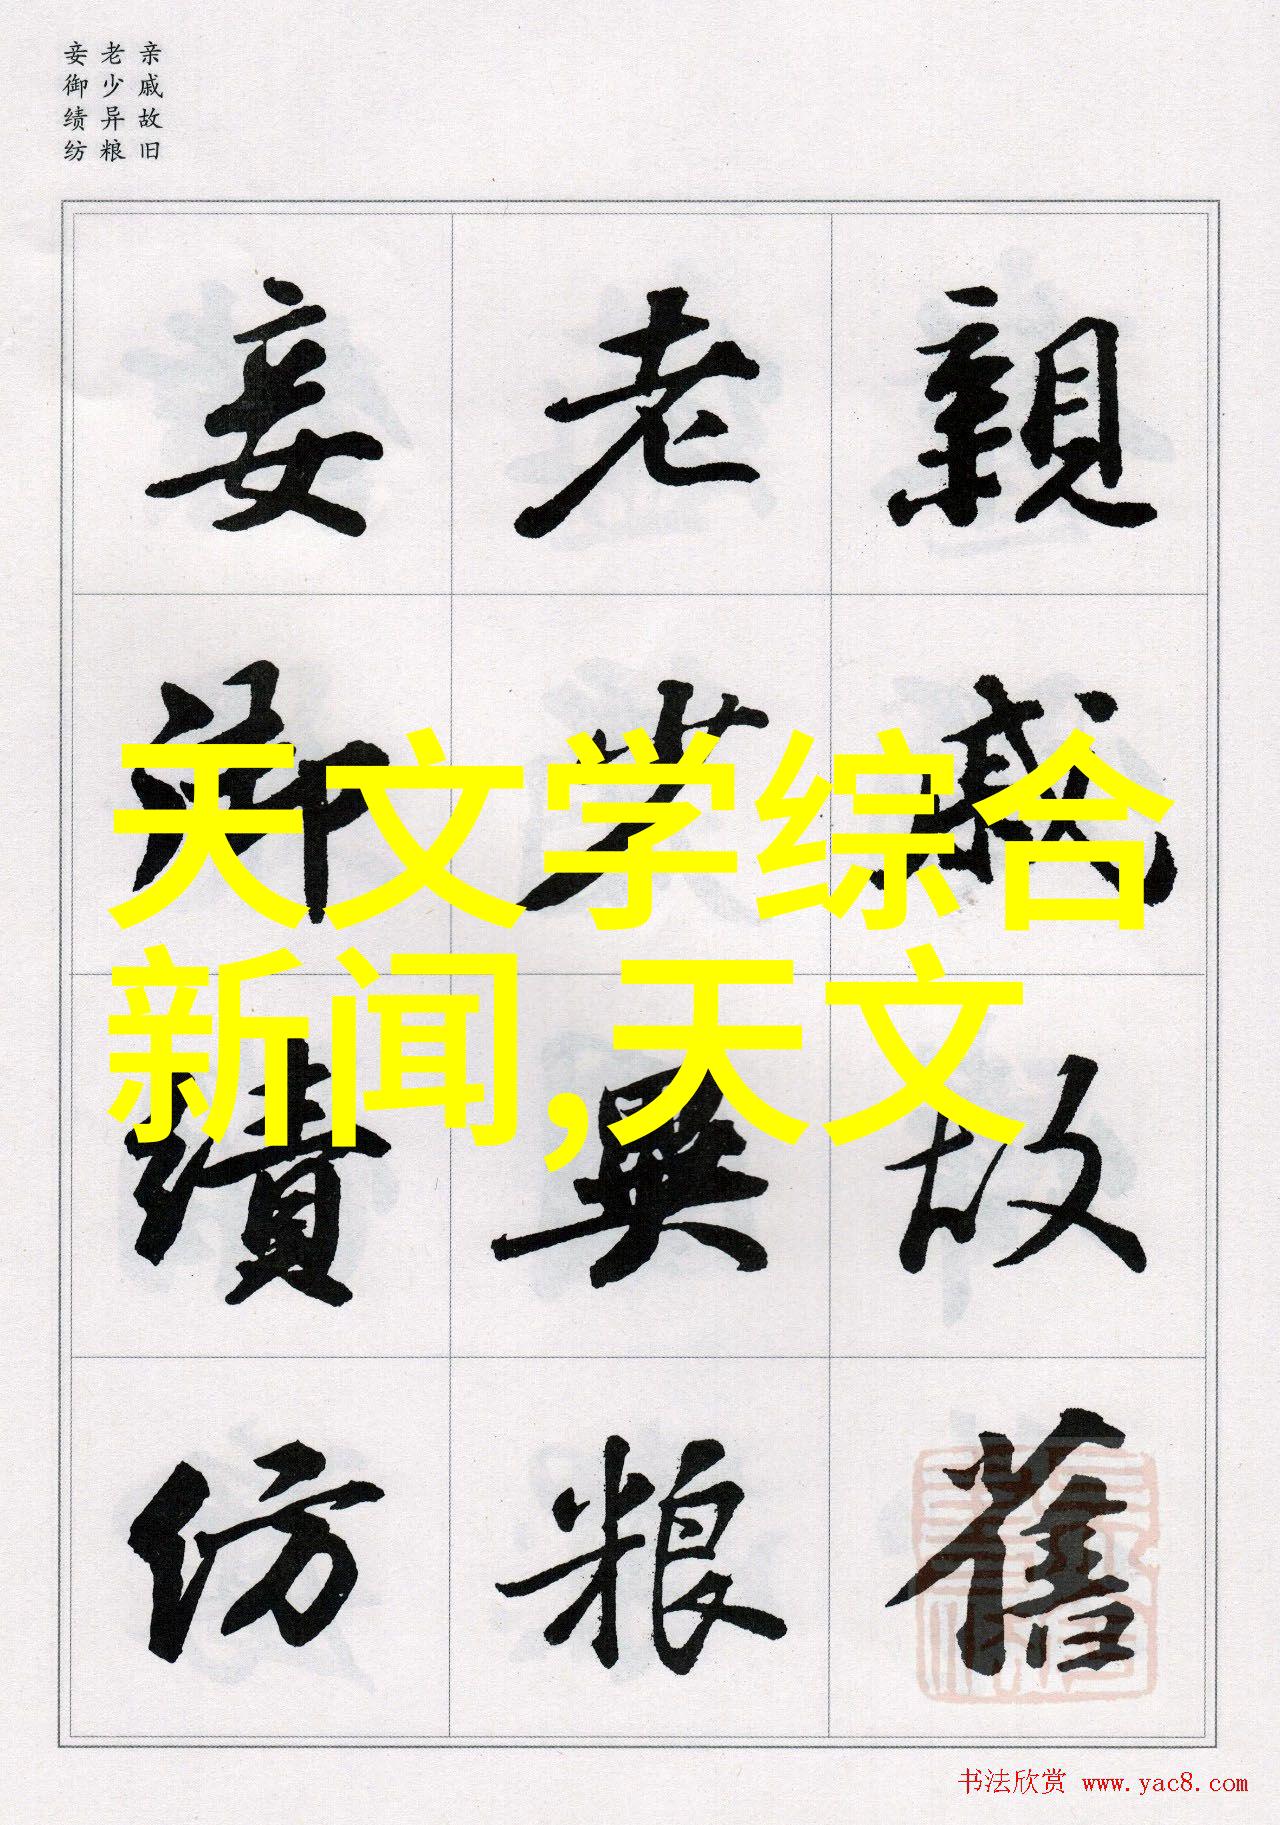 亲戚故旧
老少异粮
妾御绩纺
親戚故舊
老少異粮
妾御績紡
天文学综合
新闻,天文
书法欣赏 www.yac8.com